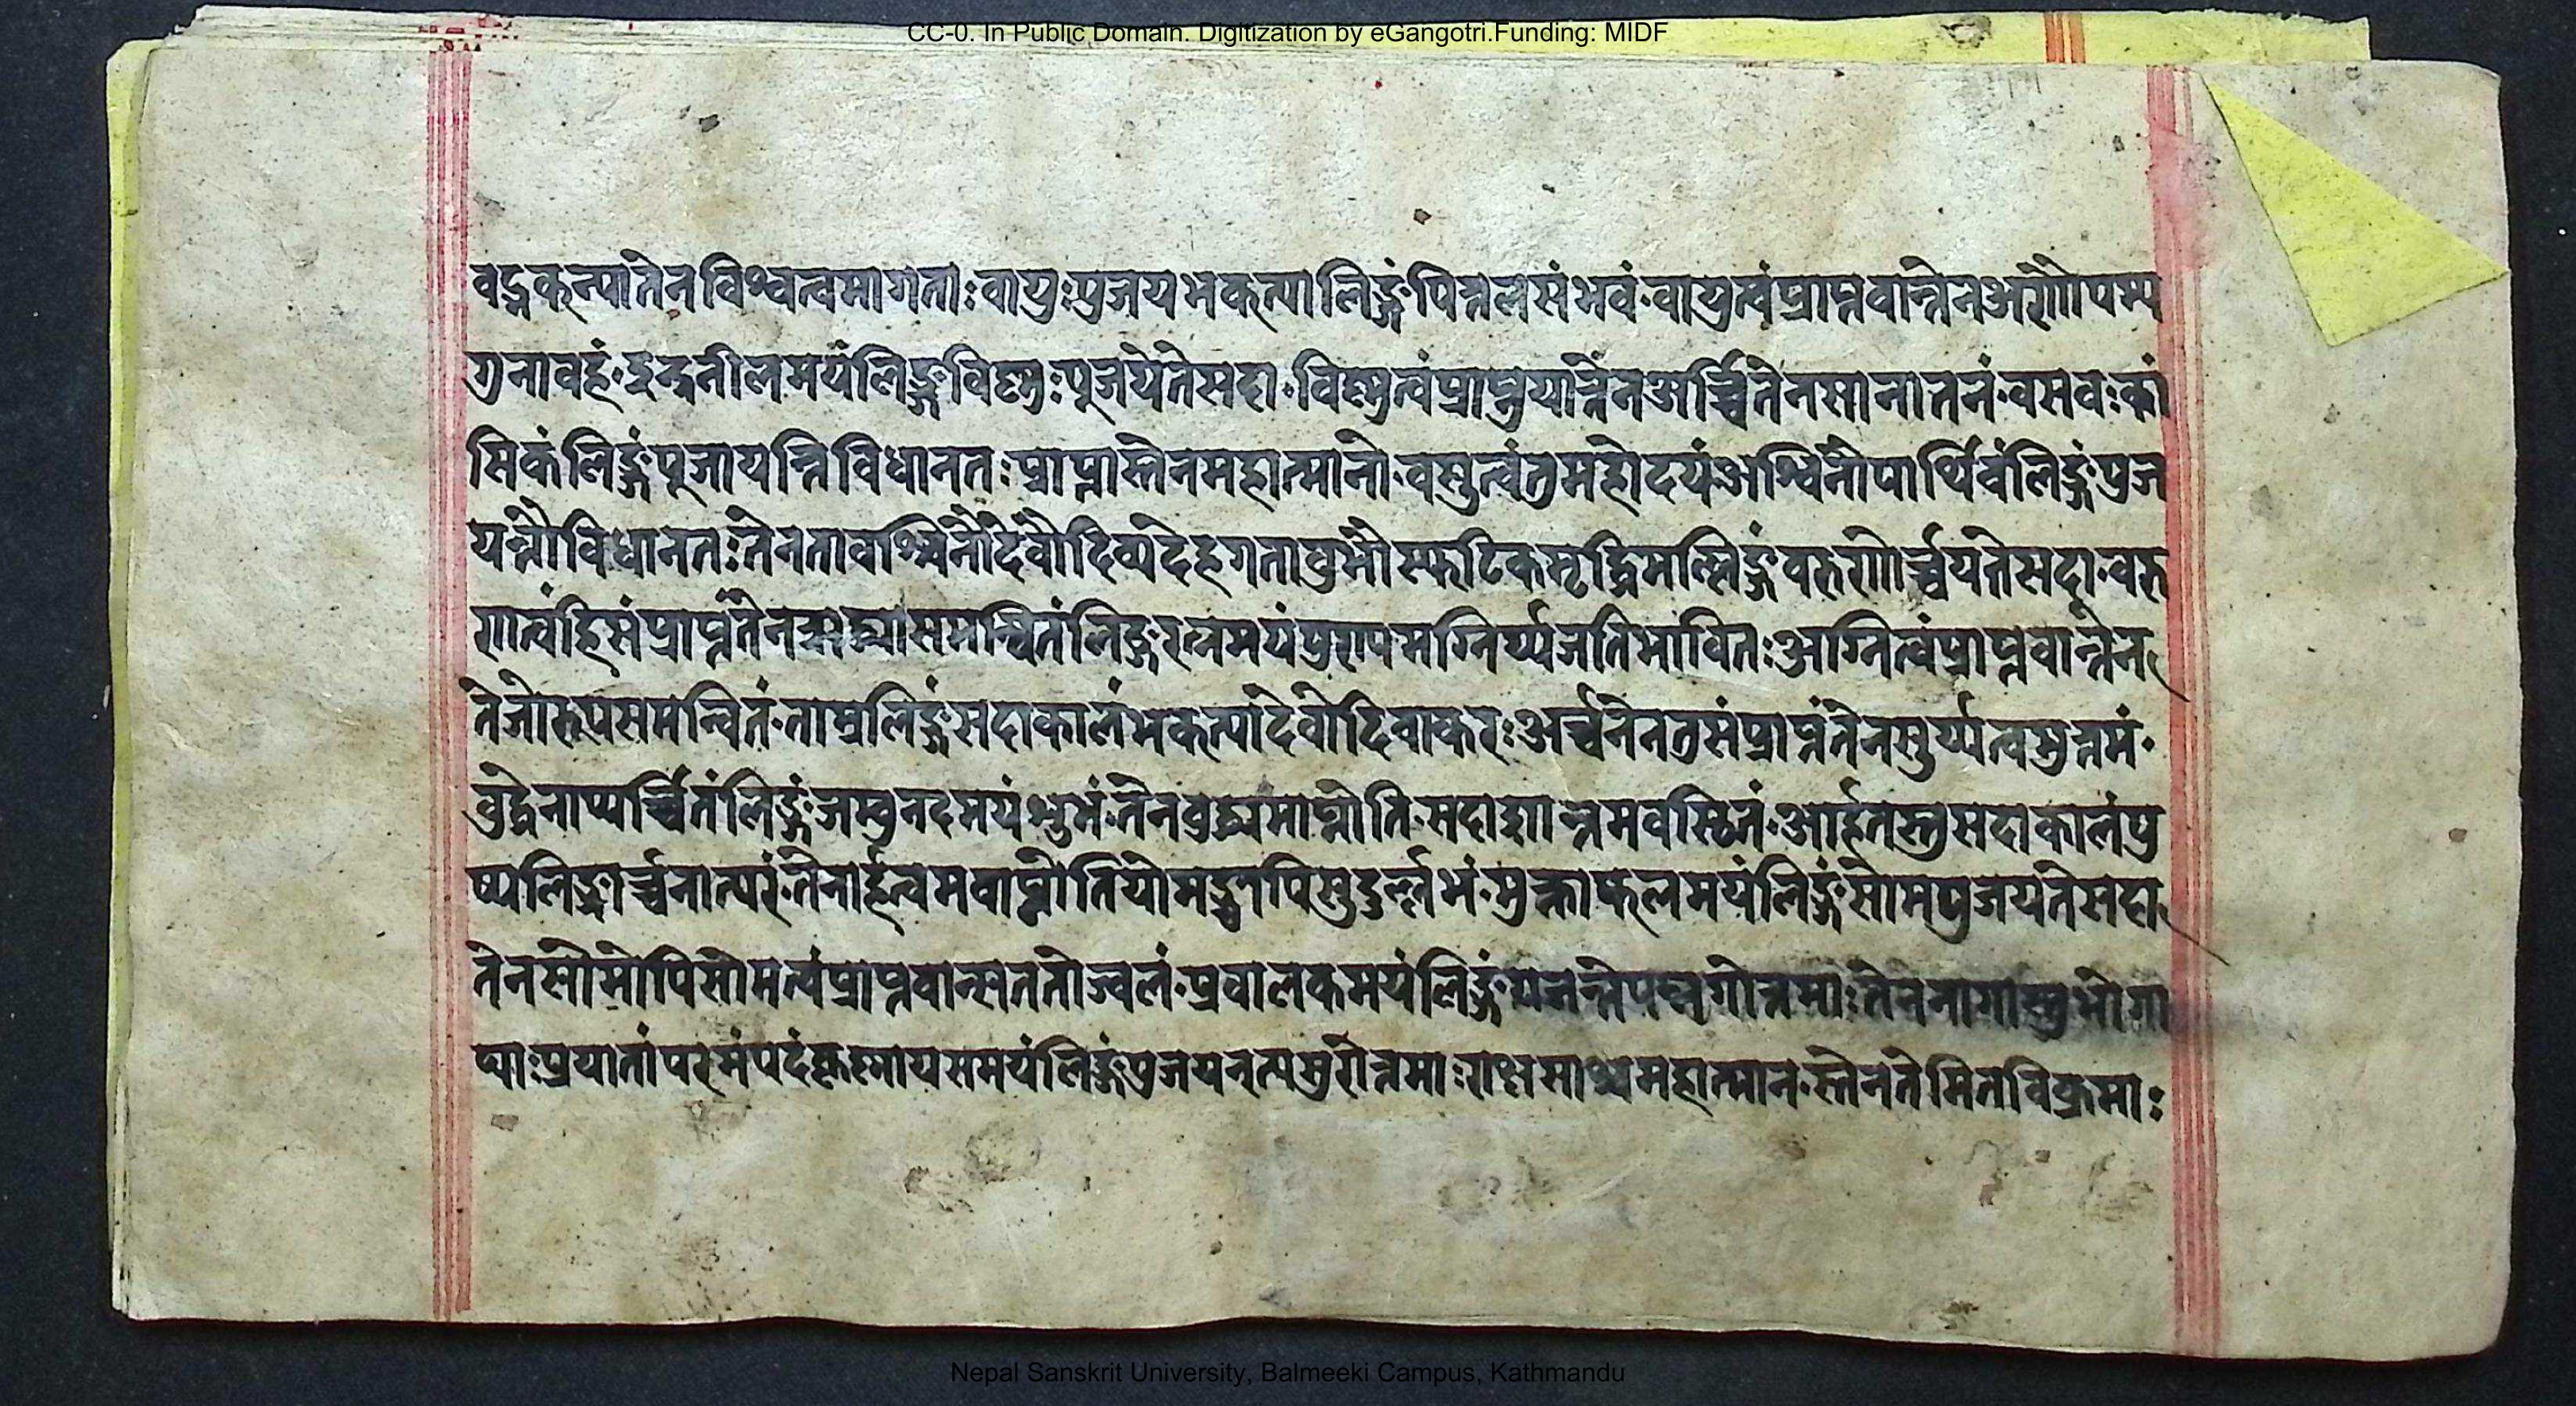 CC-0. In Public Domain. Digitization by eGangotri.Funding: MIDF
वद्गकत्यातेनविश्वत्वमागताः वायुःपुजयभकत्यालिङ्गंपित्तलसंभवं॰वायुत्वंप्राप्तवान्तेन
गुनावहं॰इन्द्रनीलमयंलिङ्गविष्णुःपूजयेतेसदा॰विष्णुत्वंप्राप्तुयात्तेनअर्च्चितेनसानातनं॰वसवःकां
सिकंलिङ्गंपूजायन्तिविधानतःप्राप्तास्तेनमहात्मानो॰वसुत्वंतुमहोदयंअश्विनौपार्थिवंलिङ्गंपुज
यन्तौविधानतःतेनतावश्विनौदेवौदिव्यदेहगतावुभौस्फटिकमृद्धिमल्लिङ्गंवरुणोर्च्चयतेसदा॰वरु
णत्वंहिसंप्राप्तंतेनऋद्ध्यासमन्वितंलिङ्गरत्नमयंपुण्यमग्निर्य्यजतिभावितःअग्नित्वंप्राप्तवान्तेन
तेजोरुपसमन्वितं॰ताम्रलिङ्गंसदाकालंभकत्यादेवोदिवाकरःअर्च्चनेनतुसंप्राप्तंतेनसुर्य्यत्वमुत्तमं॰
वुद्धेनाप्यर्च्चितंलिङ्गंजम्वुनदमयंशुभं॰तेनवुद्धत्वमाप्नोति॰सदाशान्तमवस्थितं॰आर्हतस्तुसदाकालंपु
ष्पलिङ्गार्च्चनात्परं॰तेनार्हत्वमवाप्नोतियोमद्भापिसुदुर्ल्लभं॰मुक्ताफलमयंलिङ्गंसोमपुजयतेसदा
तेनसोमोपिसोमत्वंप्राप्तवान्सततोज्वलं॰प्रवालकमयंलिङ्गंयजन्तेपन्नगोत्तमाःतेननागास्तुभोगा
ढ्याःप्रयातांपरमंपदंकृष्णायसमयंलिङ्गंपुजयन्त्यसुरोत्तमाःराक्षसाश्चमहात्मान॰स्तेनतेमितविक्रमाः
Nepal Sanskrit University, Balmeeki Campus, Kathmandu